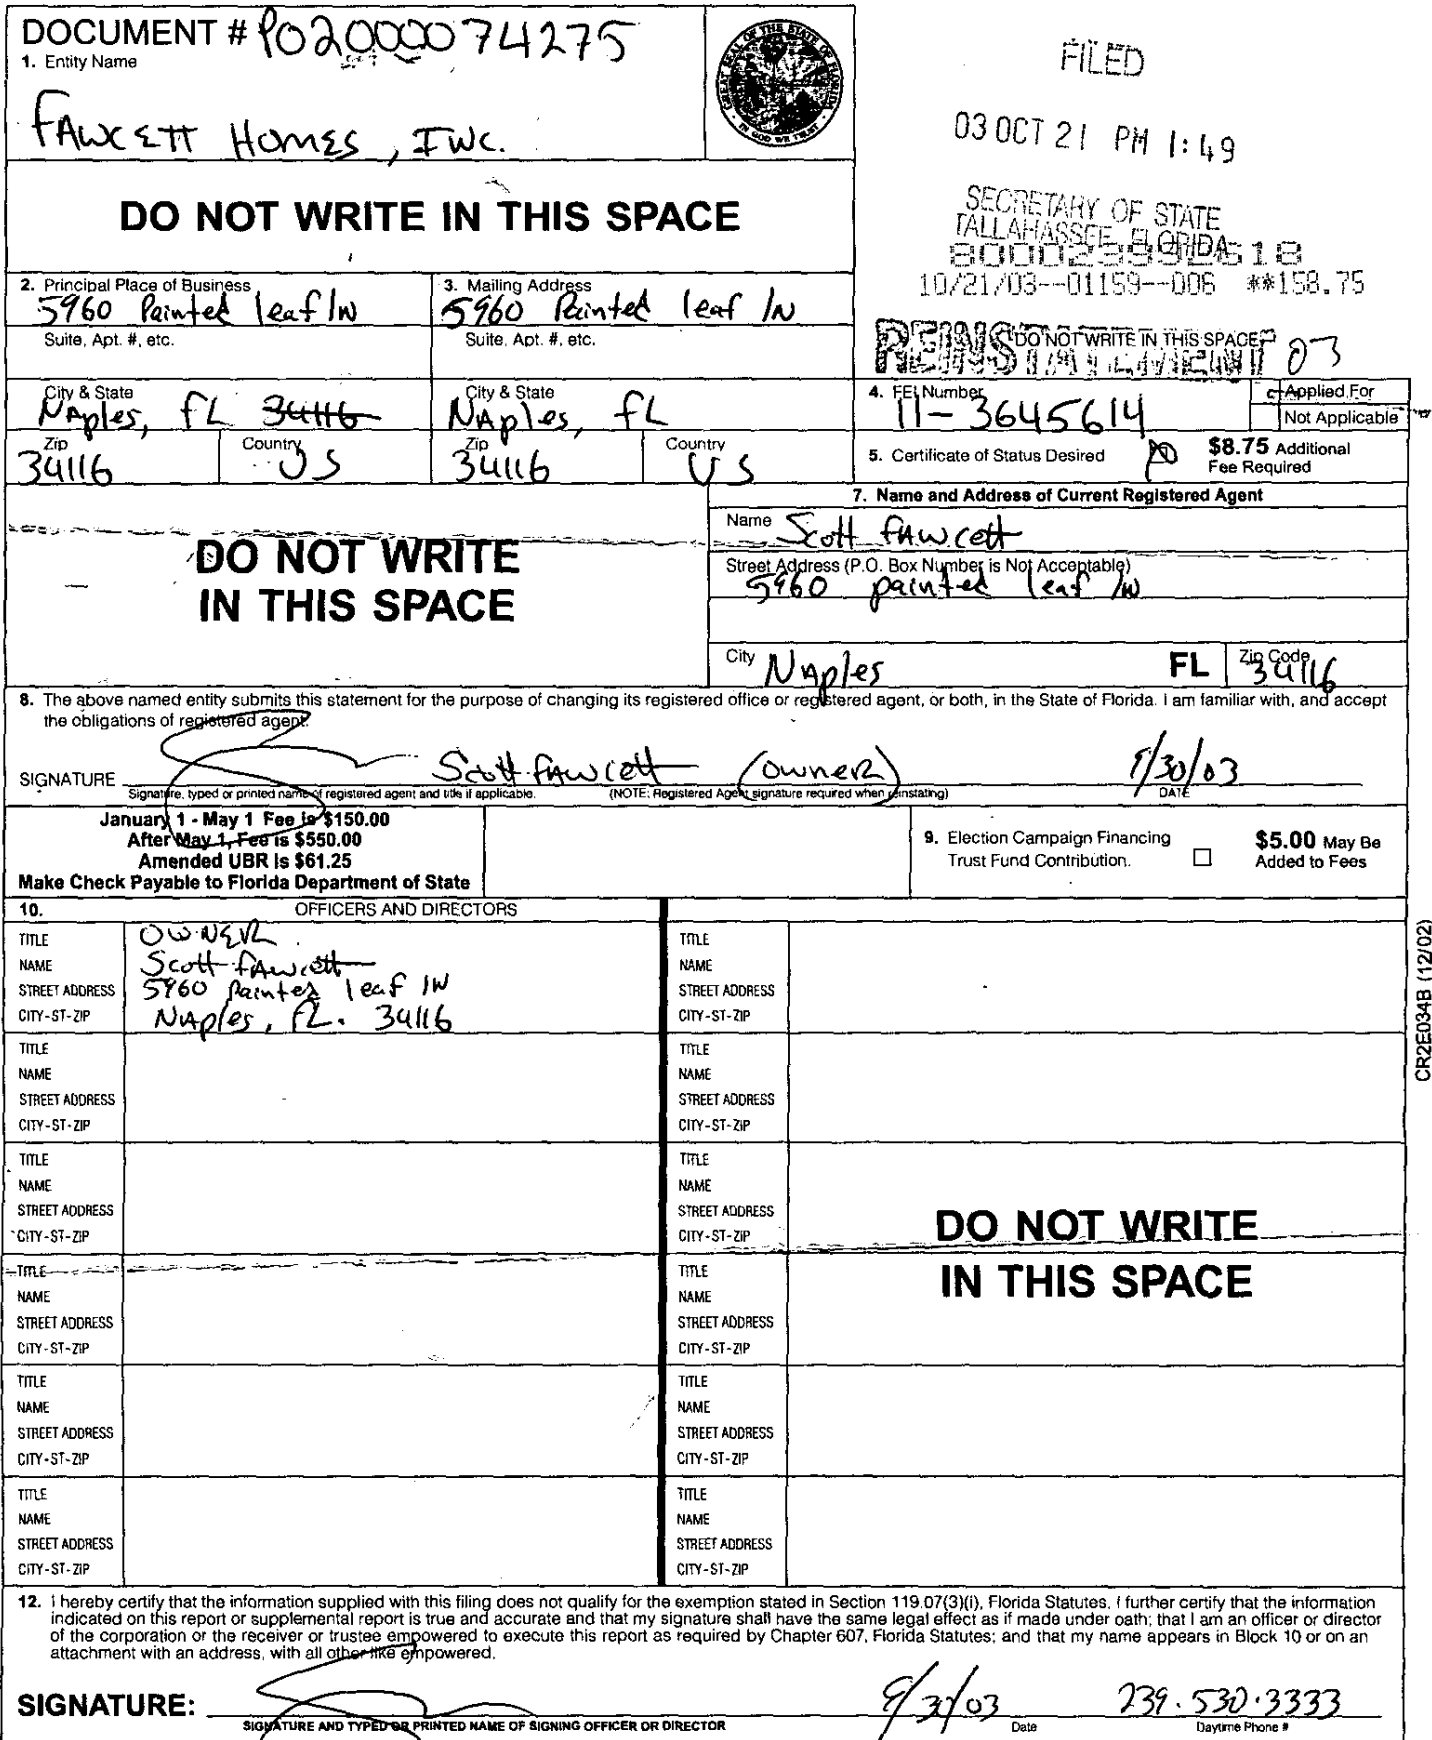 DOCUMENT # P02000074275
1. Entity Name
FAWCETT HOMES, INC.
GREAT SEAL OF THE STATE OF FLORIDA
IN GOD WE TRUST
FILED
03 OCT 21 PM 1:49
SECRETARY OF STATE
TALLAHASSEE, FLORIDA
10/21/03--01159--006 **158.75
REINSTATEMENT 03
DO NOT WRITE IN THIS SPACE
DO NOT WRITE IN THIS SPACE
2. Principal Place of Business
5960 Painted leaf lN
3. Mailing Address
5960 Painted leaf lN
Suite, Apt. #, etc.
Suite, Apt. #, etc.
City & State
NAples, FL 34116
City & State
NAples, FL
Zip
34116
Country
US
Zip
34116
Country
US
4. FEI Number
11-3645614
Applied For
Not Applicable
5. Certificate of Status Desired
$8.75 Additional
Fee Required
7. Name and Address of Current Registered Agent
Name Scott FAWcett
Street Address (P.O. Box Number is Not Acceptable)
5960 painted leaf lN
City NAples FL Zip Code 34116
DO NOT WRITE
IN THIS SPACE
8. The above named entity submits this statement for the purpose of changing its registered office or registered agent, or both, in the State of Florida. I am familiar with, and accept
the obligations of registered agent.
SIGNATURE Scott FAWcett (owner) 9/30/03
Signature, typed or printed name of registered agent and title if applicable. (NOTE: Registered Agent signature required when reinstating) DATE
January 1 - May 1 Fee is $150.00
After May 1, Fee is $550.00
Amended UBR is $61.25
Make Check Payable to Florida Department of State
9. Election Campaign Financing
Trust Fund Contribution.
$5.00 May Be
Added to Fees
10. OFFICERS AND DIRECTORS
TITLE OWNER
NAME Scott FAWcett
STREET ADDRESS 5960 Painted leaf lN
CITY-ST-ZIP NAples, FL. 34116
TITLE
NAME
STREET ADDRESS
CITY-ST-ZIP
TITLE
NAME
STREET ADDRESS
CITY-ST-ZIP
TITLE
NAME
STREET ADDRESS
CITY-ST-ZIP
TITLE
NAME
STREET ADDRESS
CITY-ST-ZIP
TITLE
NAME
STREET ADDRESS
CITY-ST-ZIP
TITLE
NAME
STREET ADDRESS
CITY-ST-ZIP
TITLE
NAME
STREET ADDRESS
CITY-ST-ZIP
TITLE
NAME
STREET ADDRESS
CITY-ST-ZIP
TITLE
NAME
STREET ADDRESS
CITY-ST-ZIP
TITLE
NAME
STREET ADDRESS
CITY-ST-ZIP
TITLE
NAME
STREET ADDRESS
CITY-ST-ZIP
DO NOT WRITE
IN THIS SPACE
CR2E034B (12/02)
12. I hereby certify that the information supplied with this filing does not qualify for the exemption stated in Section 119.07(3)(i), Florida Statutes. I further certify that the information
indicated on this report or supplemental report is true and accurate and that my signature shall have the same legal effect as if made under oath; that I am an officer or director
of the corporation or the receiver or trustee empowered to execute this report as required by Chapter 607, Florida Statutes; and that my name appears in Block 10 or on an
attachment with an address, with all other like empowered.
SIGNATURE: 9/30/03 239.530.3333
SIGNATURE AND TYPED OR PRINTED NAME OF SIGNING OFFICER OR DIRECTOR Date Daytime Phone #